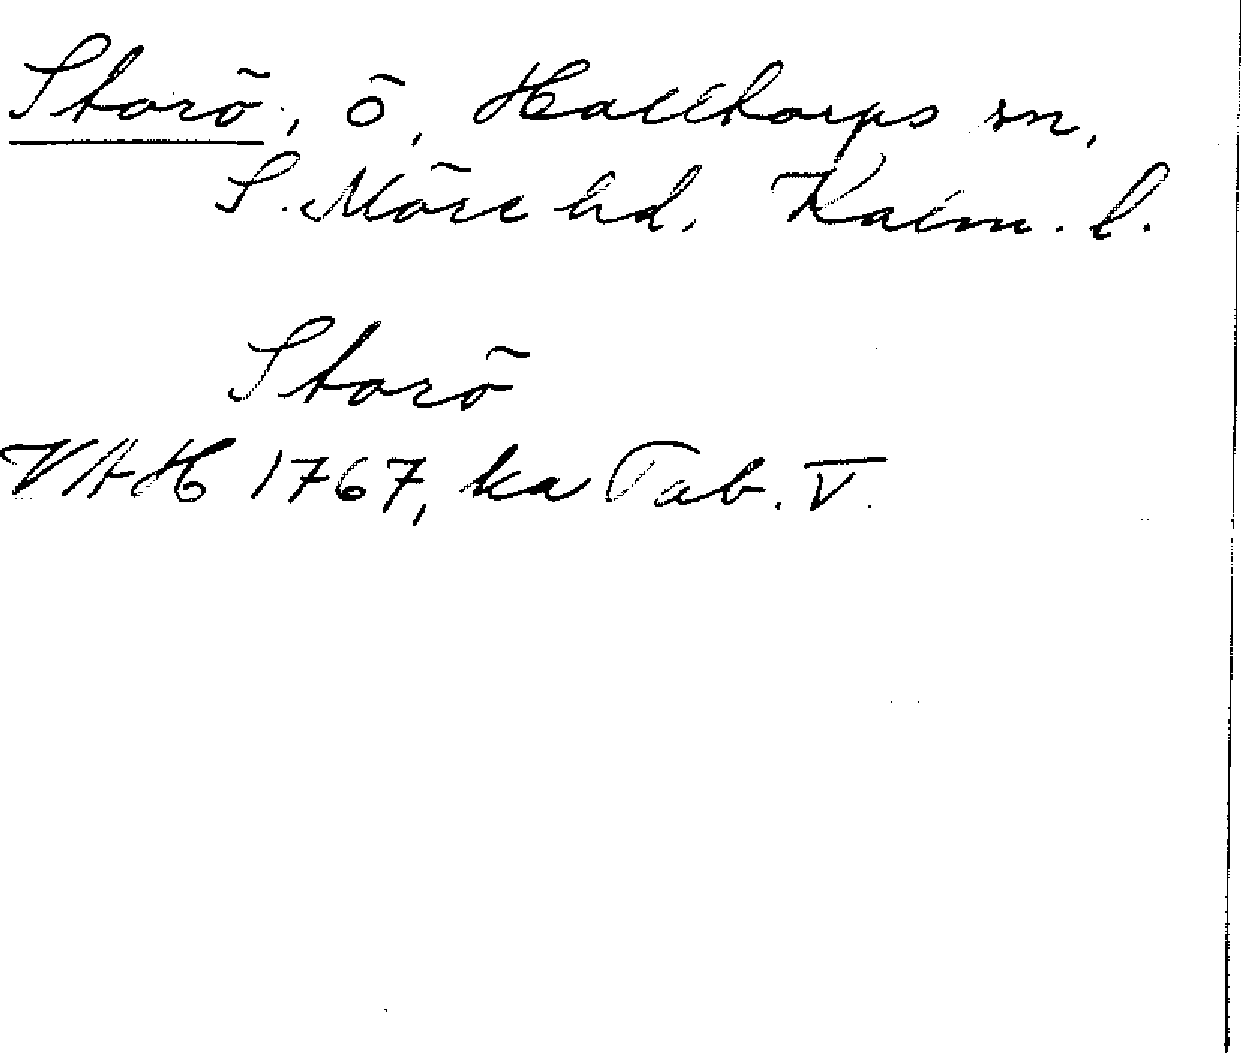 Storö, ö, Halltorps sn,
S. Möre hd, Kalm. l.
Storö
VAH 1767, ka Tab. V.